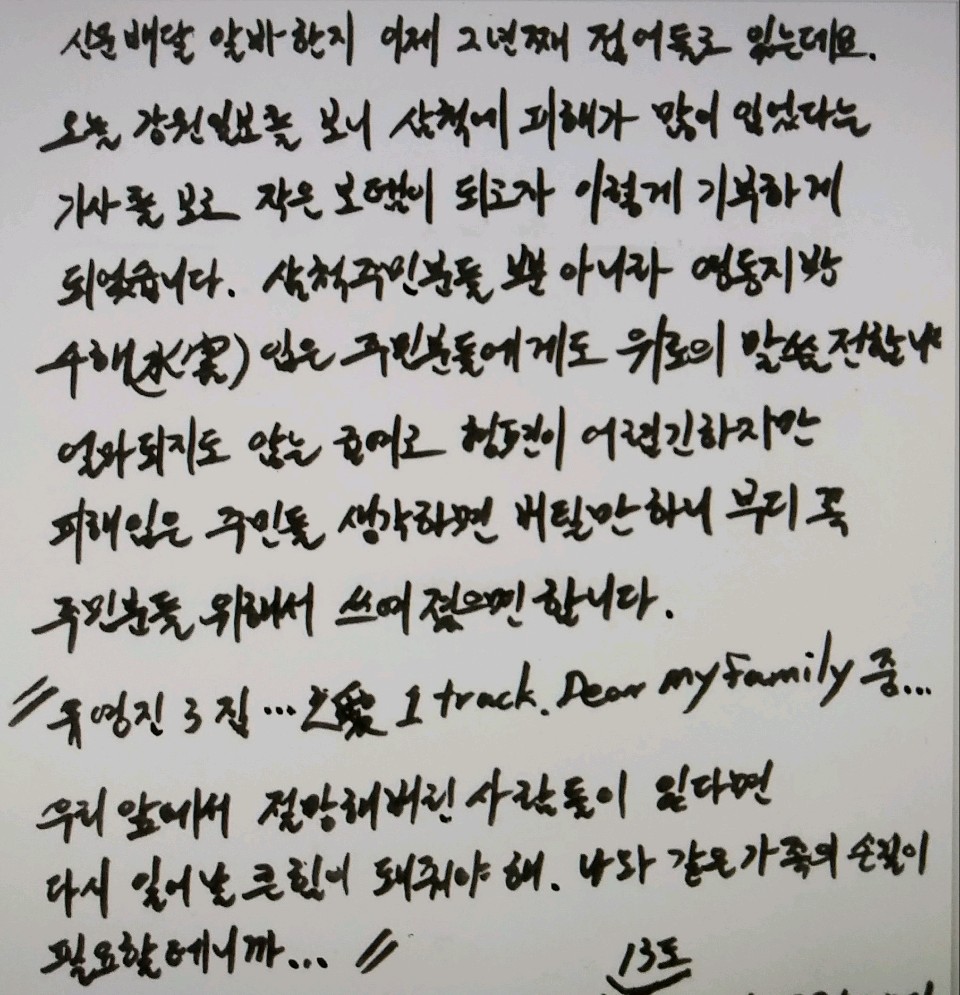 신문배달 알바한지 이제 2년째 접어들고 있는데요.
오늘 강원일보를 보니 삼척에 피해가 많이 입었다는
기사를 보고 작은 보탬이 되고자 이렇게 기부하게
되었습니다. 삼척주민분들 뿐 아니라 영동지방
수해(水害) 입은 주민분들에게도 위로의 말씀 전합니다
얼마되지도 않는 급여로 형편이 어렵긴하지만
피해입은 주민들 생각하면 버틸만 하니 부디 꼭
주민분들 위해서 쓰여 졌으면 합니다.
"유영진 3집... 之愛 1 track. Dear My Family 중...
우리 앞에서 절망해버린 사람들이 있다면
다시 일어날 큰힘이 돼줘야 해. 나와 같은 가족의 손길이
필요할테니까... "
13도